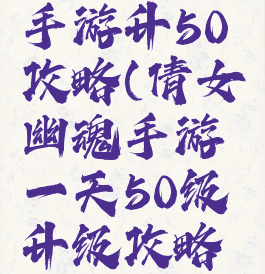 手游升50
攻略(倩女
幽魂手游
一天50级
升级攻略